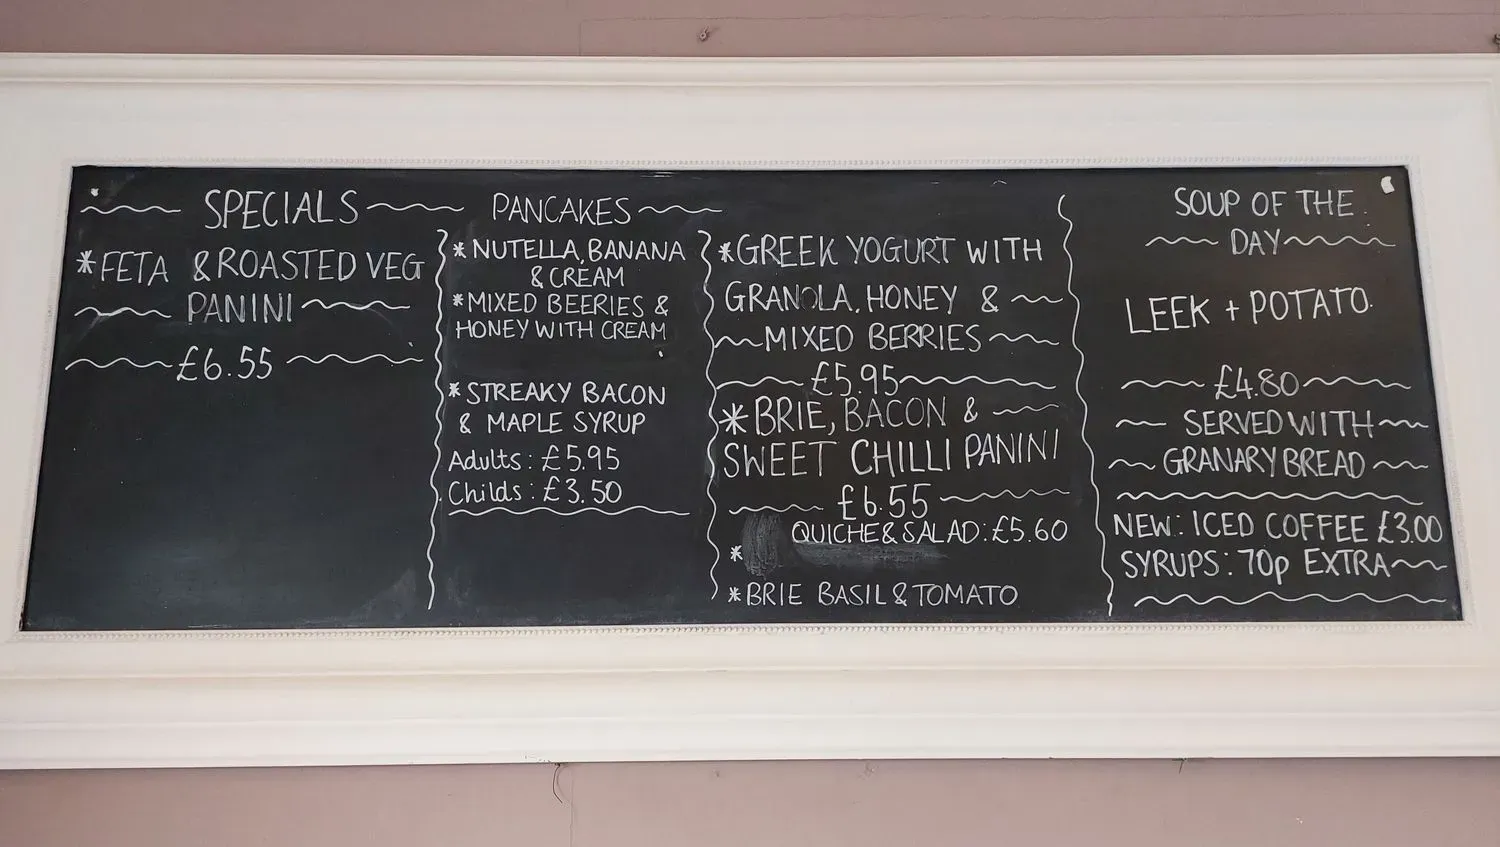 SPECIALS
*FETA & ROASTED VEG
PANINI
£6.55
PANCAKES
*NUTELLA, BANANA
& CREAM
*MIXED BEERIES &
HONEY WITH CREAM
*STREAKY BACON
& MAPLE SYRUP
Adults: £5.95
Childs: £3.50
*GREEK YOGURT WITH
GRANOLA, HONEY &
MIXED BERRIES
£5.95
*BRIE, BACON &
SWEET CHILLI PANINI
£6.55
QUICHE & SALAD: £5.60
*
*BRIE BASIL & TOMATO
SOUP OF THE
DAY
LEEK + POTATO.
£4.80
SERVED WITH
GRANARY BREAD
NEW: ICED COFFEE £3.00
SYRUPS: 70p EXTRA